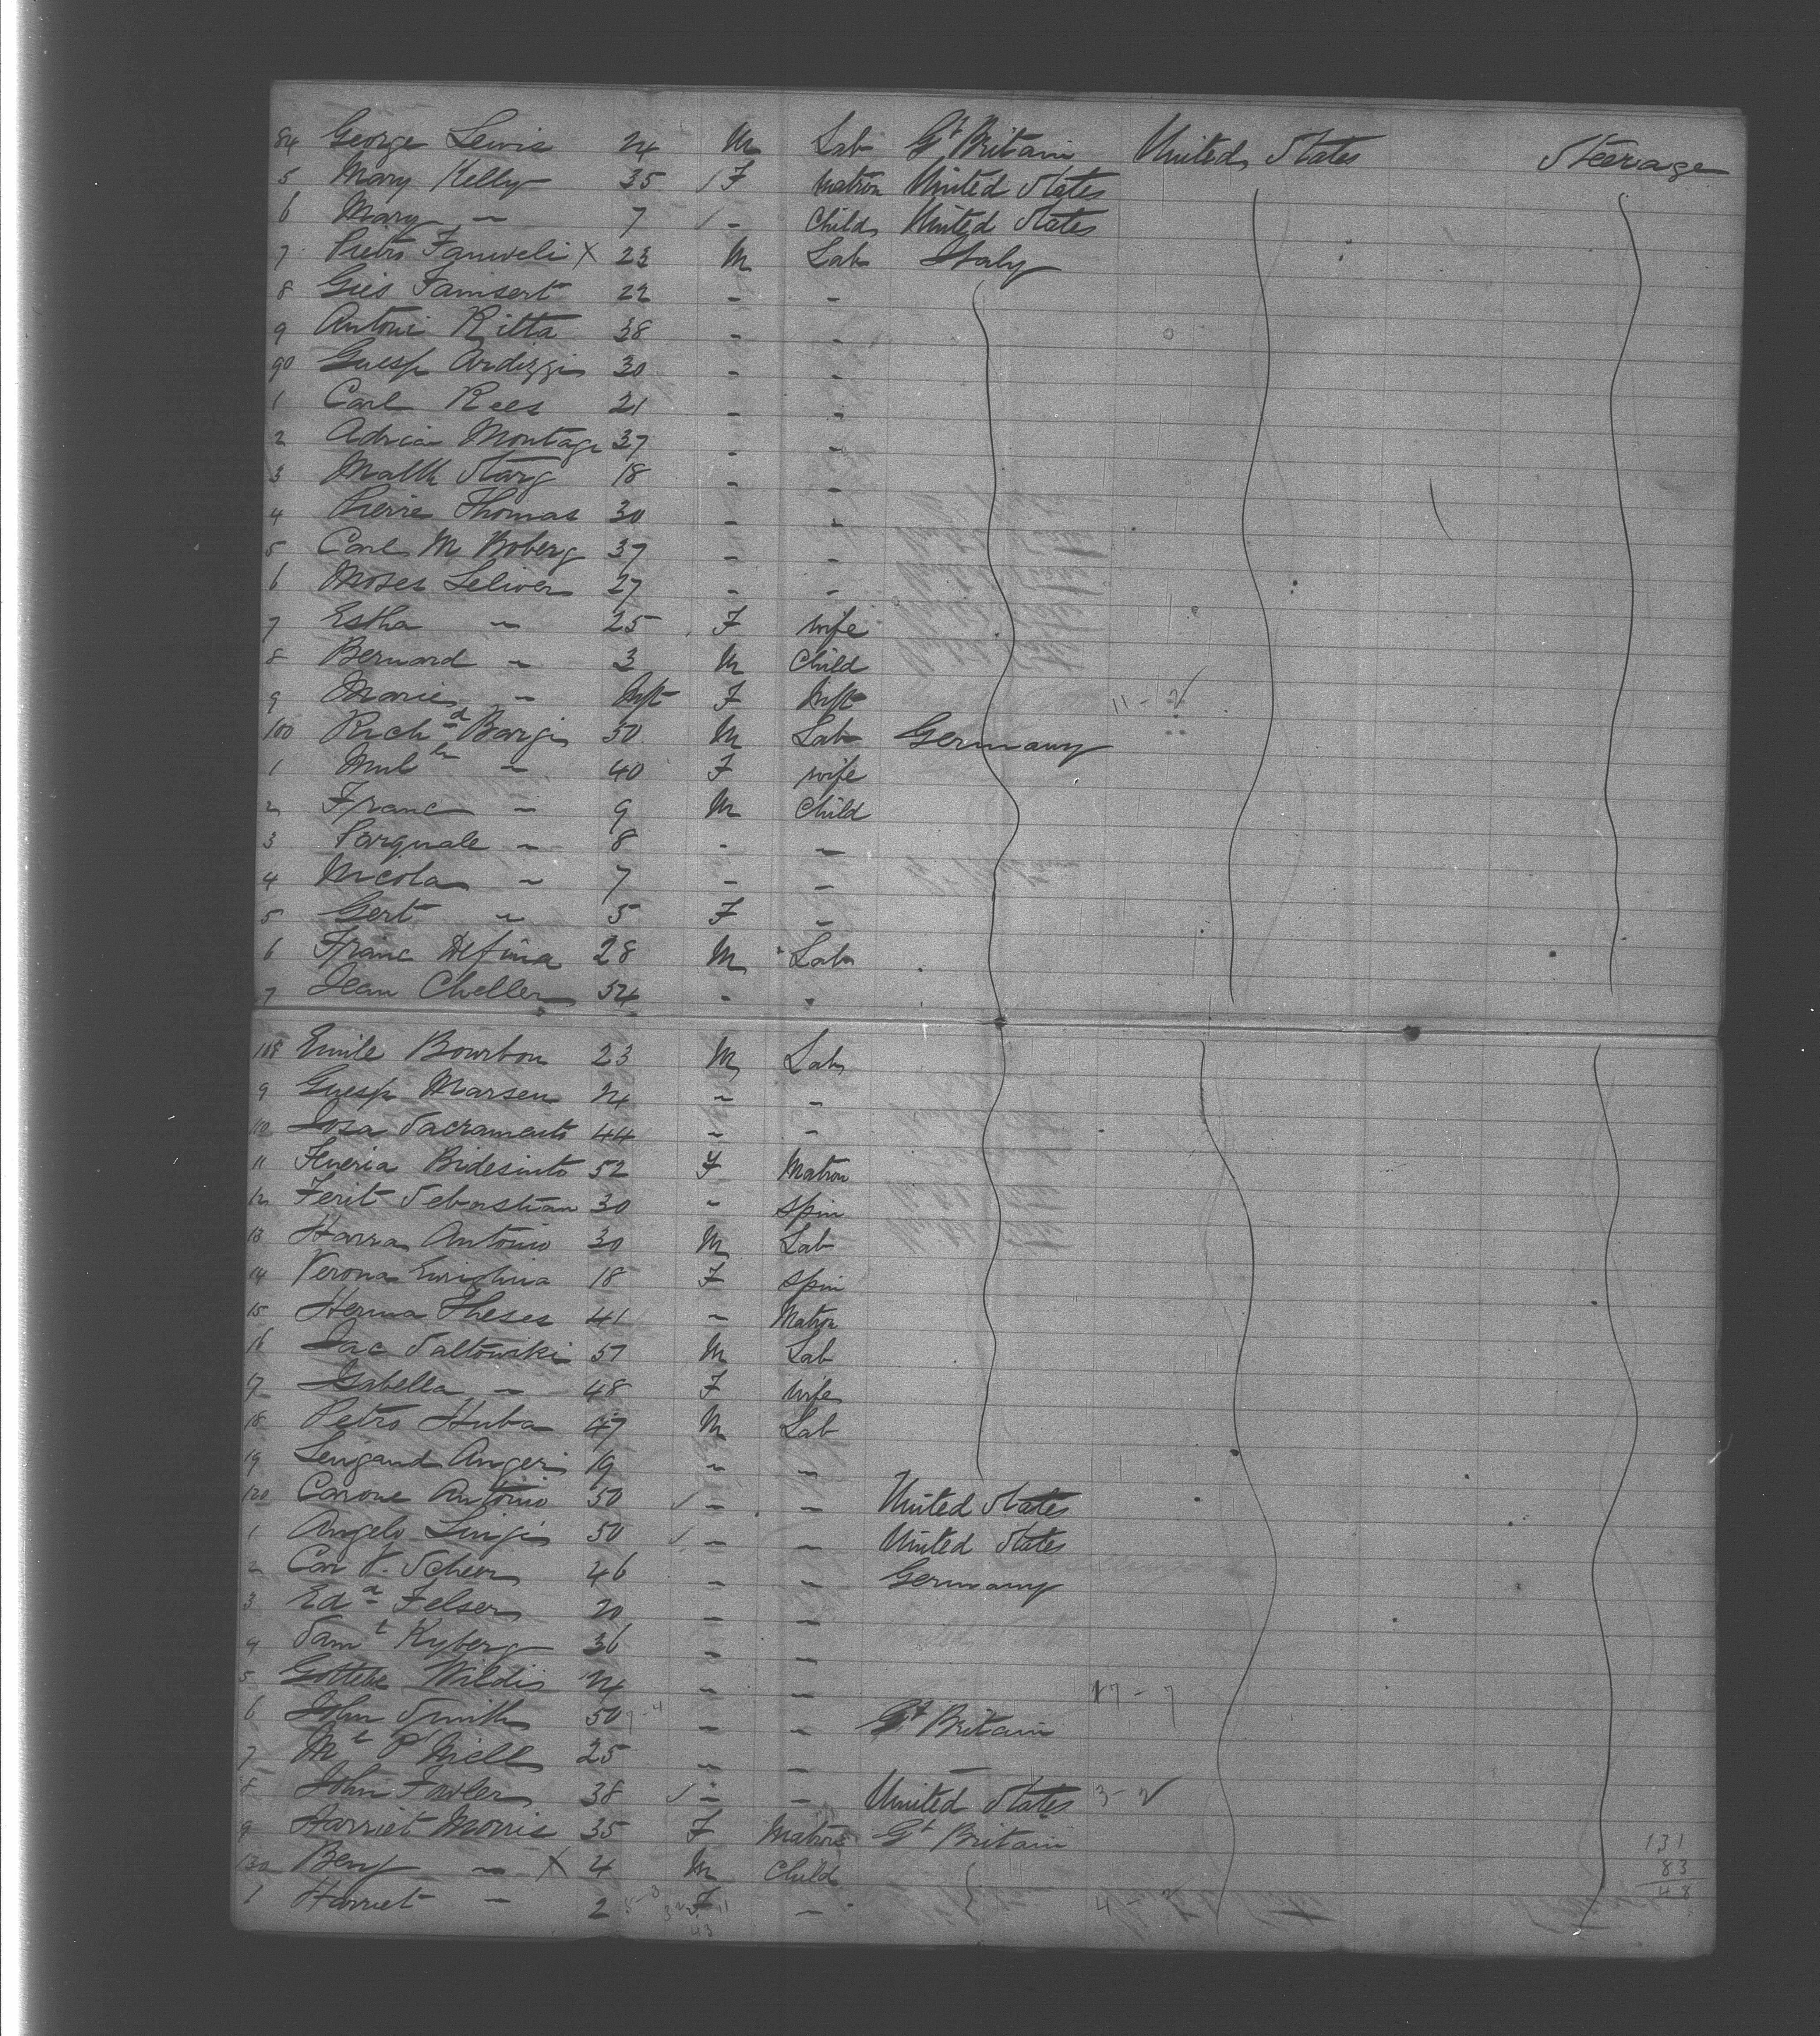 84 George Lewis 24 M Lab Gt Britain United States Steerage
5 Mary Kelly 35 ✓ F Matron United States
6 Mary " 7 ✓ " Child United States
7 Pietro X 23 M Lab Italy
8 Gies 22 " "
9 Antoni Ritta 38 " "
90 Guesp Ardizzi 30 " "
1 Carl Rees 21 " "
2 Adria Montage 37 " "
3 18 " "
4 Pierre Thomas 30 " "
5 Carl M Boberg 37 " "
6 Moses Leliver 27 " "
7 Estha " 25 F wife
8 Bernard " 3 M Child
9 Marie " Inft F Inft 11-2
100 Richd Bargi 50 M Lab Germany
1 " 40 F wife
2 Franc " 9 M Child
3 " 8 " "
4 Nicola " 7 " "
5 Gert " 5 F "
6 Franc Defina 28 M Lab
7 Jean Cheller 54 " "
108 Emile Bourbon 23 M Lab
9 Guesp Marsen 24 " "
110 Josa Sacramento 44 " "
11 52 F Matron
12 Ferit Sebastian 30 " Spin
13 Harra Antonio 30 M Lab
14 Verona 18 F Spin
15 Herma Theses 41 " Matron
16 Jac Saltowski 57 M Lab
17 Isabella " 48 F wife
18 Petro Huba 47 M Lab
19 Angeri 19 " "
120 Carone Antonio 50 ✓ " " United States
1 Angelo Luigi 50 ✓ " " United States
2 Car V. Scheer 46 " " Germany
3 Edd Felser 20 " "
4 Saml Ryberg 36 " "
5 Wildis 24 " " 17-7
6 John Smith 50 " " Gt Britain
7 25 " " "
8 John Fowler 38 ✓ " " United States 3-2
9 Harriet Morris 35 F Matron Gt Britain
130 Benj " X 4 M Child
1 Harriet " 2 F " 4-2
131
83
48
43